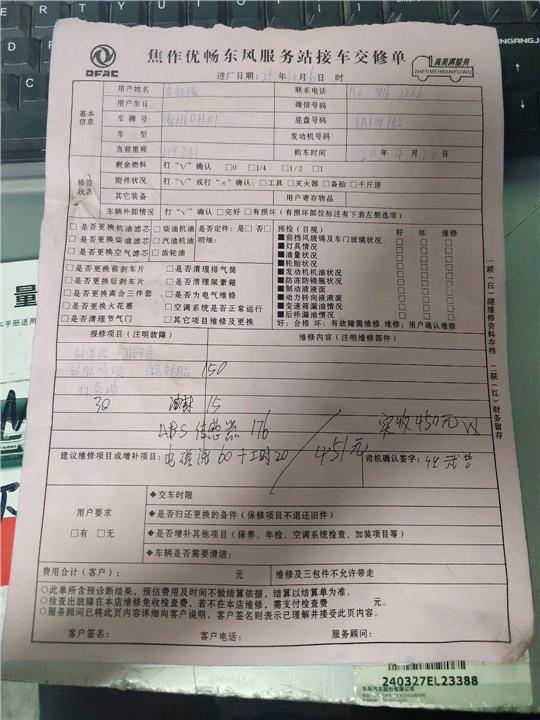 DFAC
焦作优畅东风服务站接车交修单
真美满服务
ZHENMEIMANFUWU
进厂日期:24年10月6日 时
基本信息
用户姓名 联系电话
用户生日 微信号码
车牌号 底盘号码
车型 发动机号码
当前里程 购车时间 20年4月20日
修前状态
剩余燃料 打"∨"确认 □0 □1/4 □1/2 □1
附件状况 打"∨"或打"×"确认:□工具 □灭火器 □备胎 □千斤顶
其它装备 用户寄存物品
车辆外部情况 打"∨"确认 □完好 □有损坏(有损坏部位标注有下表左侧选项)
□是否更换机油滤芯 □柴油机油 是否定件:□是 □否
□是否更换柴油滤芯 □汽油机油 明细:
□是否更换空气滤芯 □齿轮油
□是否更换前刹车片 □是否清理排气筒
□是否更换后刹车片 □是否清理尿素箱
□是否更换离合三件套 □是否为电气维修
□是否更换火花塞 □空调系统是否正常运行
□是否清理节气门 □其它项目维修及更换
预检(目视) 好 坏 维修
■前挡风玻璃及车门玻璃状况 □ □ □
■灯具情况 □ □ □
■油量状况 □ □ □
■轮胎状况 □ □ □
■发动机机油状况 □ □ □
■防冻防锈瓶状况 □ □ □
■制动液液面 □ □ □
■动力转向液液面 □ □ □
■变速箱漏油情况 □ □ □
■后桥漏油情况 □ □ □
好:合格 坏:有故障需维修 维修:用户确认维修
报修项目(注明故障) 维修内容(注明维修部件)
150
打黄油
30 油封 15
ABS传感器 176 实收450元
建议维修项目或增补项目: 60+工时20 / 451元 司机确认签字:
用户要求
□有 □无
◆交车时限
◆是否归还更换的备件(保修项目不退还旧件)
◆是否增补其他项目(保养、年检、空调系统检查、加装项目等)
◆车辆是否需要清洁:
费用合计(客户): 元 维修及三包件不允许带走
○此单所含预诊断结果,预估费用及时间不做结算依据,结算以结算单为准。
○检查出故障在本店维修免收检查费,若不在本店维修,需支付检查费 元。
○服务顾问已将此页内容详细向客户说明,客户签名则表示已理解并接受此页内容。
客户签名: 客户电话: 服务顾问:
一联(白)随维修资料存档 二联(红)财务留存
240327EL23388
东风汽车股份有限公司